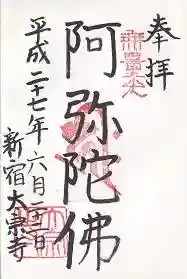 奉拝
阿弥陀佛
平成二十七年六月二十二日
新宿太宗寺